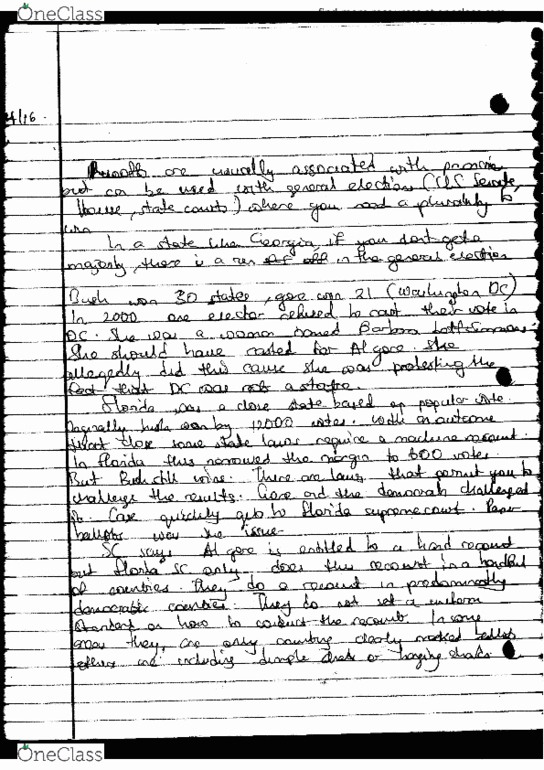 OneClass
4/16.
are usually associated with
but can be used with general elections (US Senate,
House, state courts) where you need a plurality to
win
In a state like Georgia, if you dont get a
majority, there is a run off in the general election
Bush won 30 states, gore won 21 (Washington DC)
In 2000 one elector refused to cast their vote in
DC. She was a woman named Barbara
She should have casted for Al gore. She
allegedly did this cause she was protesting the
fact that DC was not a state.
Florida was a close state based on popular vote.
bush won by votes. with an outcome
that close some state laws require a machine recount.
In florida this narrowed the margin to 600 votes
But Bush still wins. There are laws that permit you to
challenge the results. Gore and the democrats challenged
it. Case quickly gets to florida supreme court. Paper
ballots was the issue
SC says Al gore is entitled to a hand recount
but florida SC only does this recount in a handful
of countries. They do a recount in predominantly
democratic countries. They do not set a uniform
standard on how to conduct the recount. In some
they, are only counting clearly marked ballots
others are including dimple chads or hanging chads
OneClass